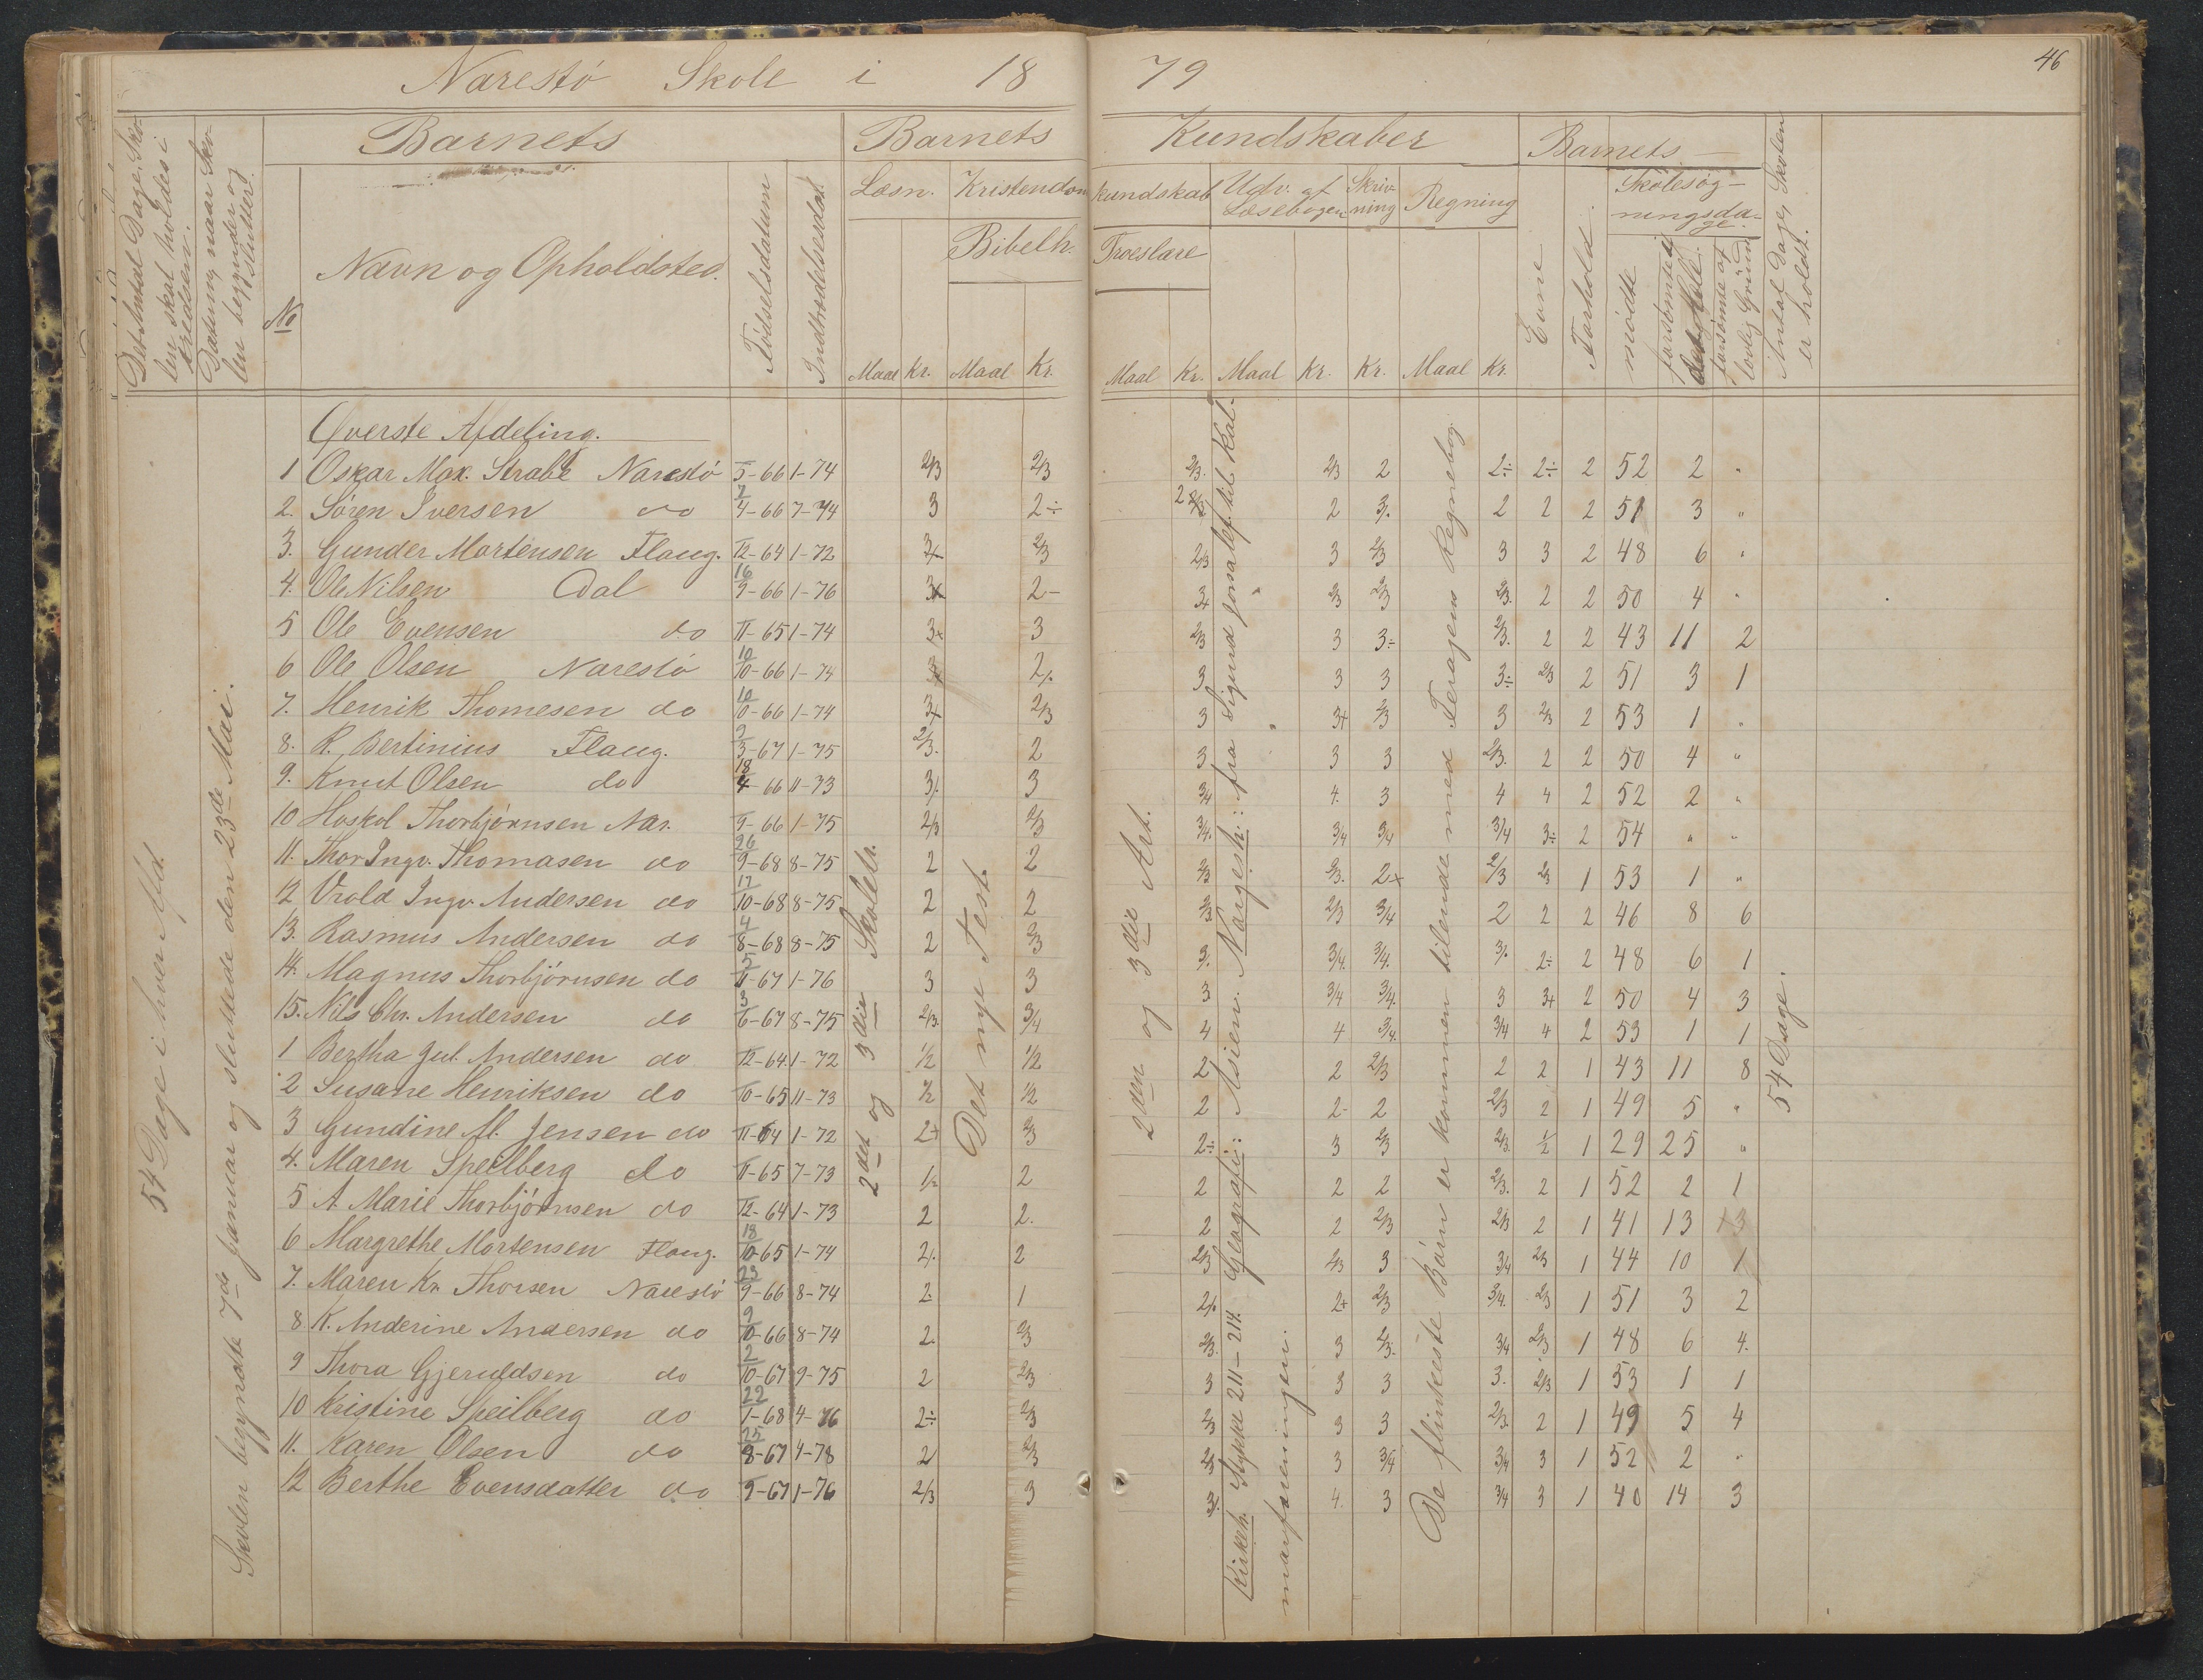 Narestö Skole i 1879
46
Det Antal Dage, Skolen skal holdes i Kredsen.
Datum, naar Skolen begynder og slutter.
Barnets
No
Navn og Opholdsted.
Födselsdatum
Indtrædelsesdat.
Barnets Kundskaber
Læsn. Kristendomskundskab Udv. af Læsebogen Skrivning Regning
Bibelh. Troeslære
Maal Kr. Maal Kr. Maal Kr. Maal Kr. Kr. Maal Kr.
Barnets
Evne
Forhold.
Skolesögningsdage.
mödte
forsömte
forsömte af lovlig Grund
Antal Dage, Skolen er holdt.
54 Dage i hver Afd.
Skolen begyndte 7de Januar og sluttede den 23de Mai.
2det og 3die Skoletr.
Det nye Test.
2den og 3die Art.
Kirkeh. Stykke 211-214. Geografi: Asien. Norgesh.: fra Sigurd Jorsalaf. til Kalmarforeningen.
De flinkeste Börn er kommen tilende med Feragens Regnebog.
54 Dage.
Överste Afdeling.
1 Oskar Max. Strabe Narestö 5-66 1-74 2/3 2/3 2/3. 2/3 2 2÷ 2÷ 2 52 2 "
2. Sören Iversen do 2/4-66 7-74 3 2÷ 2 3. 2 2 2 51 3 "
3. Gunder Mortensen Flaug. 12-64 1-72 3+ 2/3 2/3 3 2/3 3 3 2 48 6 "
4. Ole Nilsen Dal 16/9-66 1-76 3+ 2- 3+ 2/3 2/3 2/3. 2 2 50 4 "
5 Ole Evensen do 11-65 1-74 3+ 3 2/3 3 3÷ 2/3. 2 2 43 11 2
6 Ole Olsen Narestö 10/10-66 1-74 2. 3 3 3 3÷ 2/3 2 51 3 1
7. Henrik Thomesen do 10/10-66 1-74 3+ 2/3 3 3+ 2/3 3 2/3 2 53 1 "
8. R. Bertinius Flaug. 9/3-67 1-75 2/3. 2 3 3 3 2/3. 2 2 50 4 "
9. Knut Olsen do 18/4-66 11-73 3. 3 3/4 4. 3 4 4 2 52 2 "
10 Hoskol Thorbjörnsen Nar. 9-66 1-75 2/3 2/3 3/4. 3/4 3/4 3/4 3÷ 2 54 " "
11. Thor Ingv. Thomasen do 26/9-68 8-75 2 2 2/3 2/3. 2+ 2/3 2/3 1 53 1 "
12 Vrold Ingv. Andersen do 17/10-68 8-75 2 2 2/3 2/3 3/4 2 2 2 46 8 6
13. Rasmus Andersen do 4/8-68 8-75 2 2/3 3. 3/4. 3/4. 3. 2÷ 2 48 6 1
14. Magnus Thorbjörnsen do 5/11-67 1-76 3 3 3 3/4 3/4. 3 3+ 2 50 4 3
15. Nils Chr. Andersen do 3/6-67 8-75 2/3. 3/4 4 4 3/4. 3/4 4 2 53 1 1
1 Bertha Jul. Andersen do 12-64. 1-72 1/2 1/2 2 2 2/3 2 2 1 43 11 8
2 Susane Henriksen do 10-65 11-73 1/2 1/2 2 2- 2 2/3 2 1 49 5 "
3 Gundine M. Jensen do 11-64 1-72 2+ 2/3 2÷ 3 2/3 2/3. 1/2 1 29 25 "
4. Maren Speilberg do 11-65 7-73 1÷ 2 2 2 2 2/3. 2 1 52 2 1
5 A. Marie Thorbjörnsen do 12-64 1-73 2 2. 2 2 2/3 2/3 2 1 41 13 13
6 Margrethe Mortensen Flaug. 18/10-65 1-74 2. 2 2/3 2/3 3 3/4 2/3 1 44 10 1
7. Maren Kr. Thorsen Narestö 23/9-66 8-74 2 1 2. 2+ 2/3 3/4. 2/3 1 51 3 2
8. K. Anderine Andersen do 9/10-66 8-74 2. 2/3 2/3. 3 2/3. 3/4 2/3 1 48 6 4.
9 Thora Gjeruldsen do 2/10-67 9-75 2 2/3 3 3 3 3. 2/3 1 53 1 1
10 Kristine Speilberg do 22/1-68 4-76 2÷ 2/3 2/3 3 3 2/3. 2 1 49 5 4
11. Karen Olsen do 25/8-67 4-78 2 2/3 2/3 3 3/4 3/4 3 1 52 2 "
12 Berthe Evensdatter do 9-67 1-76 2/3 3 3. 4. 3 3/4 3 1 40 14 3